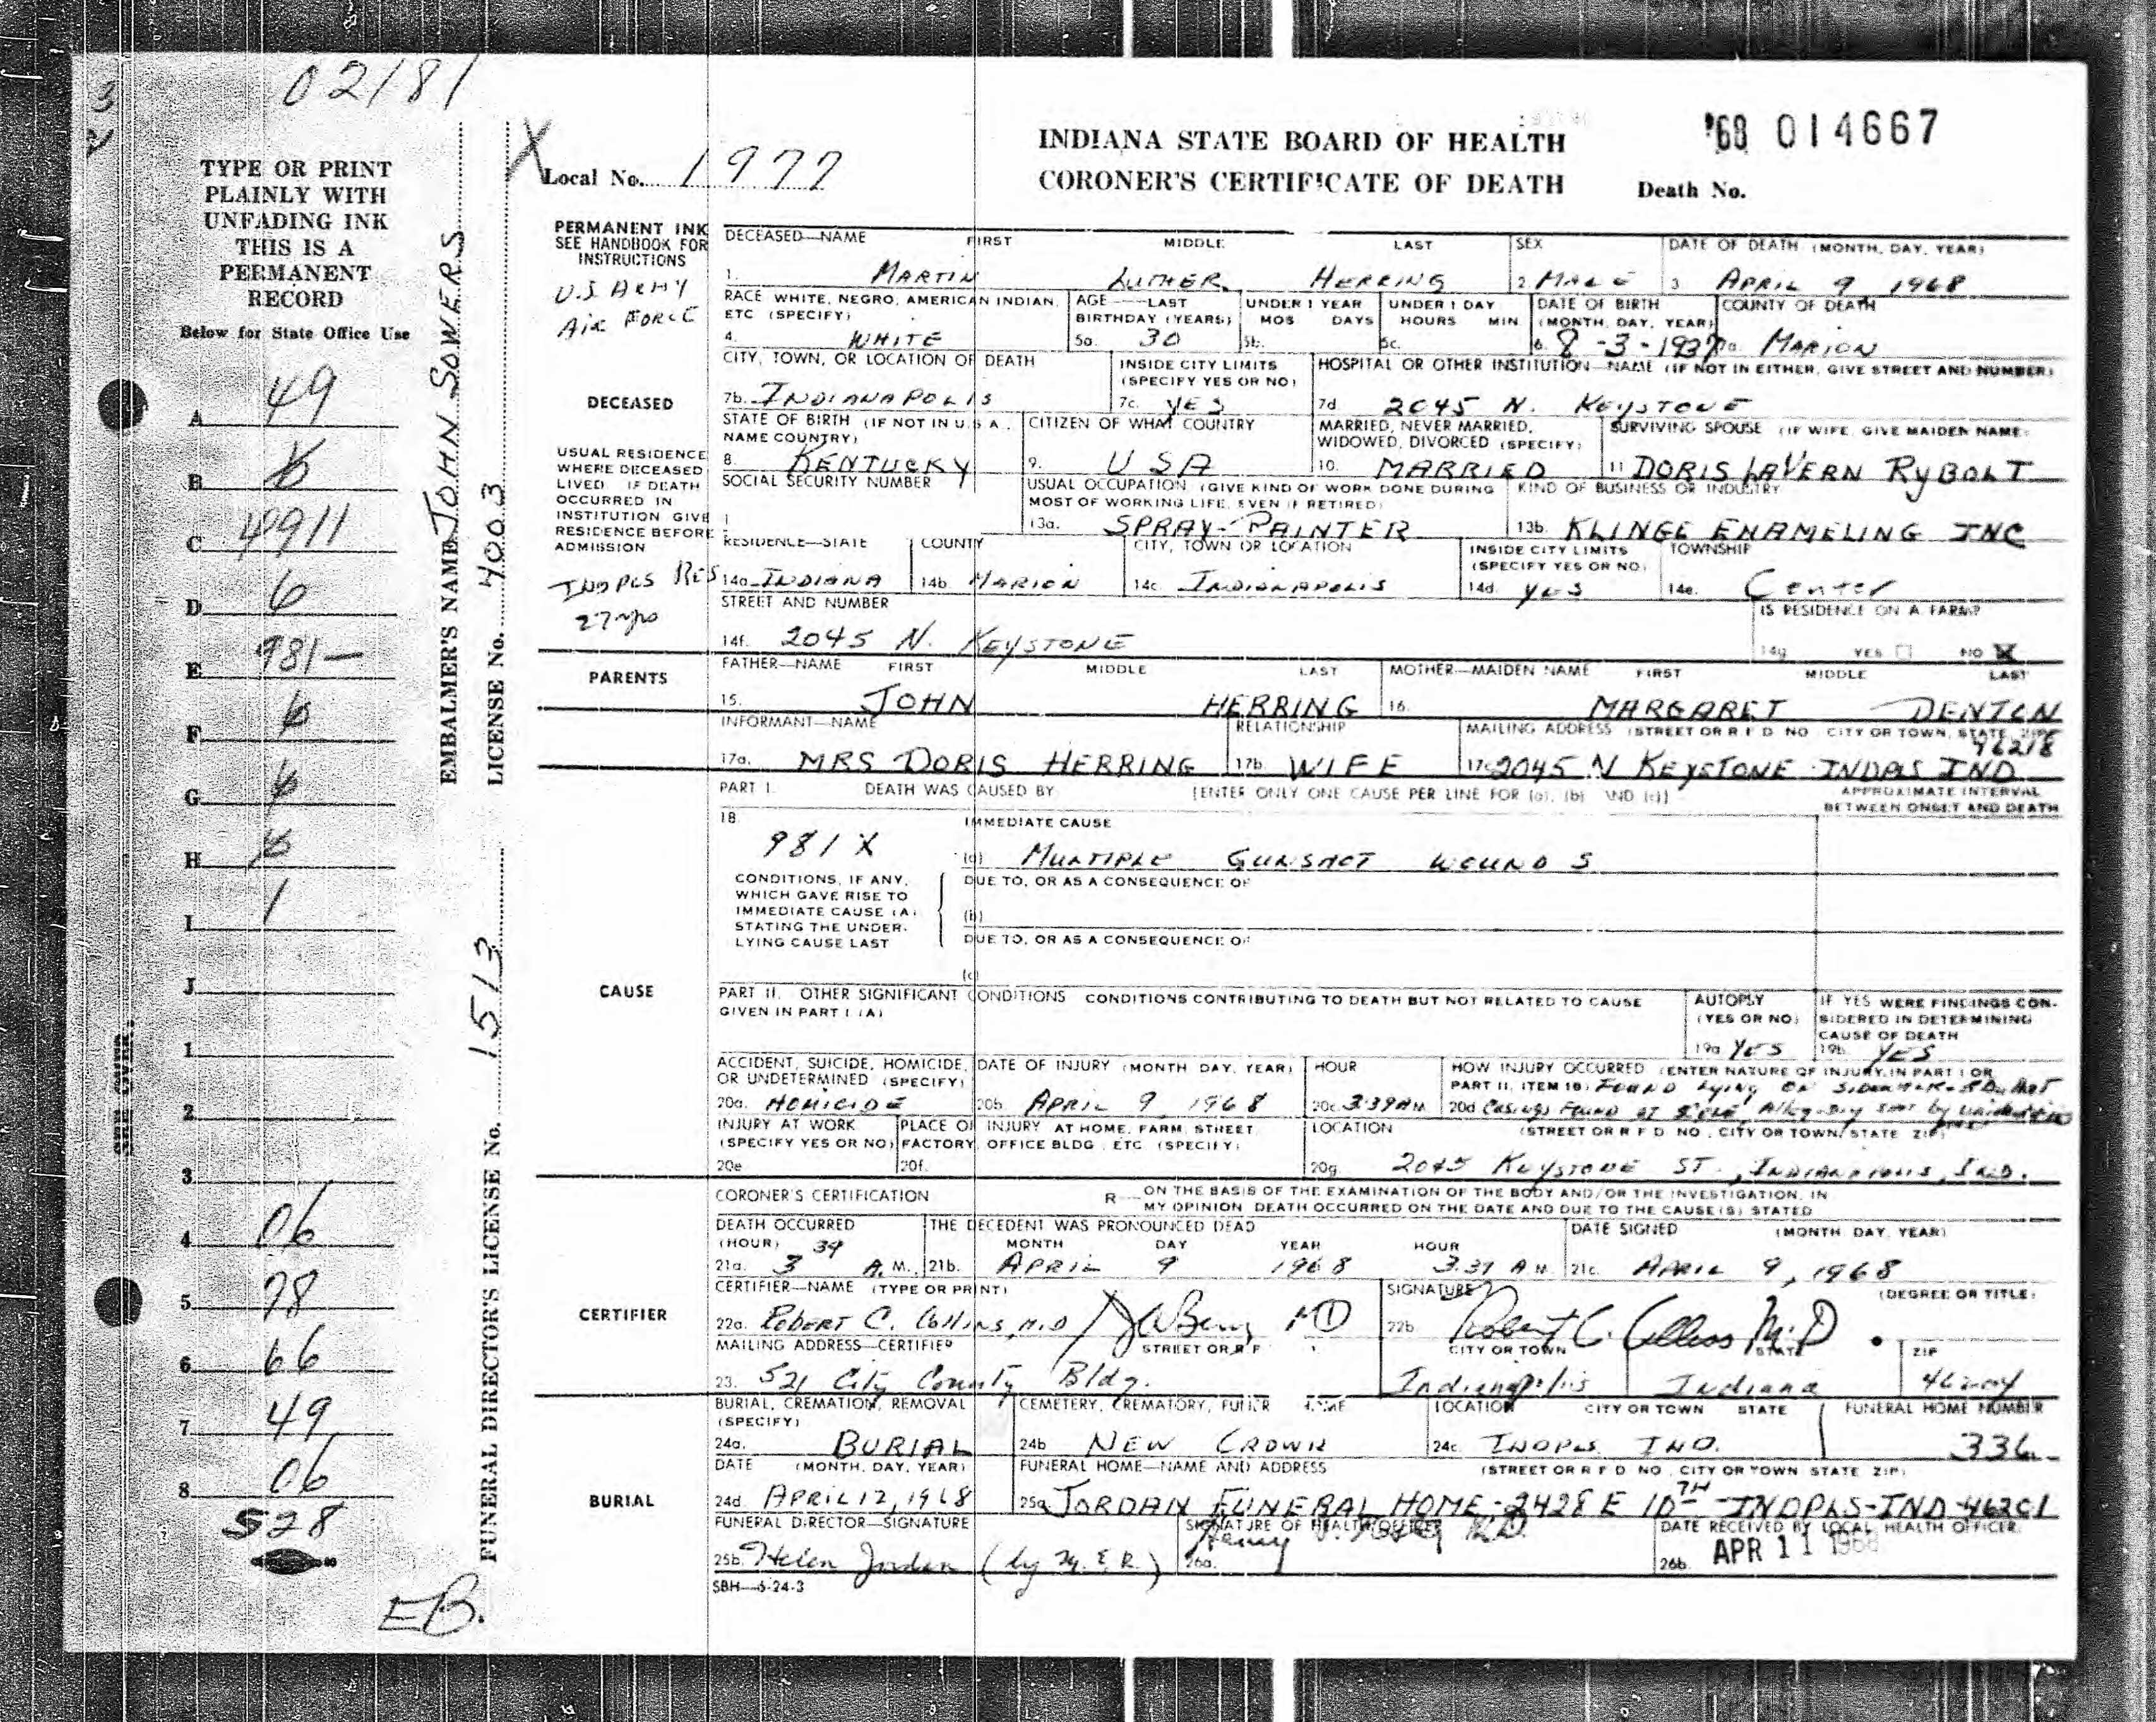 02181
TYPE OR PRINT
PLAINLY WITH
UNFADING INK
THIS IS A
PERMANENT
RECORD
Below for State Office Use
A 49
B
C 4911
D 6
E 981-
F
G
H
I 1
J
1
2
3
4 06
5 98
6 66
7 49
8 06
528
EB.
EMBALMER'S NAME JOHN SOWERS
LICENSE No. 4003
FUNERAL DIRECTOR'S LICENSE No. 1513
X Local No. 1977
INDIANA STATE BOARD OF HEALTH
CORONER'S CERTIFICATE OF DEATH
'68 014667
Death No.
PERMANENT INK
SEE HANDBOOK FOR
INSTRUCTIONS
U.S ARMY
AIR FORCE
DECEASED
USUAL RESIDENCE
WHERE DECEASED
LIVED IF DEATH
OCCURRED IN
INSTITUTION GIVE
RESIDENCE BEFORE
ADMISSION
INDPLS RES
27 yrs
DECEASED—NAME FIRST MIDDLE LAST SEX DATE OF DEATH (MONTH, DAY, YEAR)
1. MARTIN LUTHER HERRING 2. MALE 3 APRIL 9 1968
RACE WHITE, NEGRO, AMERICAN INDIAN, AGE—LAST UNDER 1 YEAR UNDER 1 DAY DATE OF BIRTH COUNTY OF DEATH
ETC (SPECIFY) BIRTHDAY (YEARS) MOS DAYS HOURS MIN. (MONTH, DAY, YEAR)
4. WHITE 5a. 30 5b. 5c. 6. 8-3-1937 7a. MARION
CITY, TOWN, OR LOCATION OF DEATH INSIDE CITY LIMITS HOSPITAL OR OTHER INSTITUTION—NAME (IF NOT IN EITHER, GIVE STREET AND NUMBER)
(SPECIFY YES OR NO)
7b. INDIANAPOLIS 7c. YES 7d 2045 N. KEYSTONE
STATE OF BIRTH (IF NOT IN U.S.A., CITIZEN OF WHAT COUNTRY MARRIED, NEVER MARRIED, SURVIVING SPOUSE (IF WIFE, GIVE MAIDEN NAME)
NAME COUNTRY) WIDOWED, DIVORCED (SPECIFY)
8. KENTUCKY 9. USA 10. MARRIED 11 DORIS LAVERN RYBOLT
SOCIAL SECURITY NUMBER USUAL OCCUPATION (GIVE KIND OF WORK DONE DURING KIND OF BUSINESS OR INDUSTRY
MOST OF WORKING LIFE, EVEN IF RETIRED)
13a. SPRAY-PAINTER 13b. KLINGE ENAMELING INC
RESIDENCE—STATE COUNTY CITY, TOWN OR LOCATION INSIDE CITY LIMITS TOWNSHIP
(SPECIFY YES OR NO)
14a. INDIANA 14b. MARION 14c. INDIANAPOLIS 14d. YES 14e. Center
STREET AND NUMBER IS RESIDENCE ON A FARM?
14f. 2045 N. KEYSTONE 14g YES NO X
PARENTS
FATHER—NAME FIRST MIDDLE LAST MOTHER—MAIDEN NAME FIRST MIDDLE LAST
15. JOHN HERRING 16. MARGARET DENTON
INFORMANT—NAME RELATIONSHIP MAILING ADDRESS (STREET OR R F D NO CITY OR TOWN, STATE, ZIP)
46218
17a. MRS DORIS HERRING 17b. WIFE 17c 2045 N KEYSTONE INDPLS IND
CAUSE
PART I. DEATH WAS CAUSED BY [ENTER ONLY ONE CAUSE PER LINE FOR (a), (b) AND (c)] APPROXIMATE INTERVAL
BETWEEN ONSET AND DEATH
18. IMMEDIATE CAUSE
981X (a) MULTIPLE GUNSHOT WOUNDS
CONDITIONS, IF ANY, DUE TO, OR AS A CONSEQUENCE OF
WHICH GAVE RISE TO
IMMEDIATE CAUSE (A) (b)
STATING THE UNDER-
LYING CAUSE LAST DUE TO, OR AS A CONSEQUENCE OF
(c)
PART II. OTHER SIGNIFICANT CONDITIONS CONDITIONS CONTRIBUTING TO DEATH BUT NOT RELATED TO CAUSE AUTOPSY IF YES WERE FINDINGS CON-
GIVEN IN PART I (A) (YES OR NO) SIDERED IN DETERMINING
CAUSE OF DEATH
19a YES 19b. YES
ACCIDENT, SUICIDE, HOMICIDE, DATE OF INJURY (MONTH DAY, YEAR) HOUR HOW INJURY OCCURRED (ENTER NATURE OF INJURY IN PART I OR
OR UNDETERMINED (SPECIFY) PART II, ITEM 18) FOUND lying ON SIDEWALK
20a. HOMICIDE 20b. APRIL 9, 1968 20c 3:39 AM 20d Casings Found at Allegedly shot by
INJURY AT WORK PLACE OF INJURY AT HOME, FARM, STREET, LOCATION (STREET OR R F D NO., CITY OR TOWN, STATE ZIP)
(SPECIFY YES OR NO) FACTORY, OFFICE BLDG., ETC (SPECIFY)
20e 20f. 20g. 2045 KEYSTONE ST., INDIANAPOLIS, IND.
CERTIFIER
CORONER'S CERTIFICATION R— ON THE BASIS OF THE EXAMINATION OF THE BODY AND/OR THE INVESTIGATION, IN
MY OPINION DEATH OCCURRED ON THE DATE AND DUE TO THE CAUSE(S) STATED
DEATH OCCURRED THE DECEDENT WAS PRONOUNCED DEAD DATE SIGNED (MONTH DAY, YEAR)
(HOUR) 39 MONTH DAY YEAR HOUR
21a. 3 A.M. 21b. APRIL 9 1968 3:39 A M. 21c. APRIL 9, 1968
CERTIFIER—NAME (TYPE OR PRINT) SIGNATURE (DEGREE OR TITLE)
22a. ROBERT C. Collins, M.D MD 22b. Robert C. Collins M.D
MAILING ADDRESS—CERTIFIER STREET OR R F CITY OR TOWN STATE ZIP
23. 521 City County Bldg. Indianapolis Indiana 46204
BURIAL
BURIAL, CREMATION, REMOVAL CEMETERY, CREMATORY, LOCATION CITY OR TOWN STATE FUNERAL HOME NUMBER
(SPECIFY)
24a. BURIAL 24b NEW CROWN 24c. INDPLS IND. 336
DATE (MONTH, DAY, YEAR) FUNERAL HOME—NAME AND ADDRESS (STREET OR R F D NO., CITY OR TOWN STATE ZIP)
24d. APRIL 12, 1968 25a JORDAN FUNERAL HOME-2428 E 10TH-INDPLS-IND 46201
FUNERAL DIRECTOR—SIGNATURE SIGNATURE OF HEALTH OFFICER DATE RECEIVED BY LOCAL HEALTH OFFICER
25b. Helen Jordan 26a. Henry 26b. APR 11 1968
SBH—6-24-3